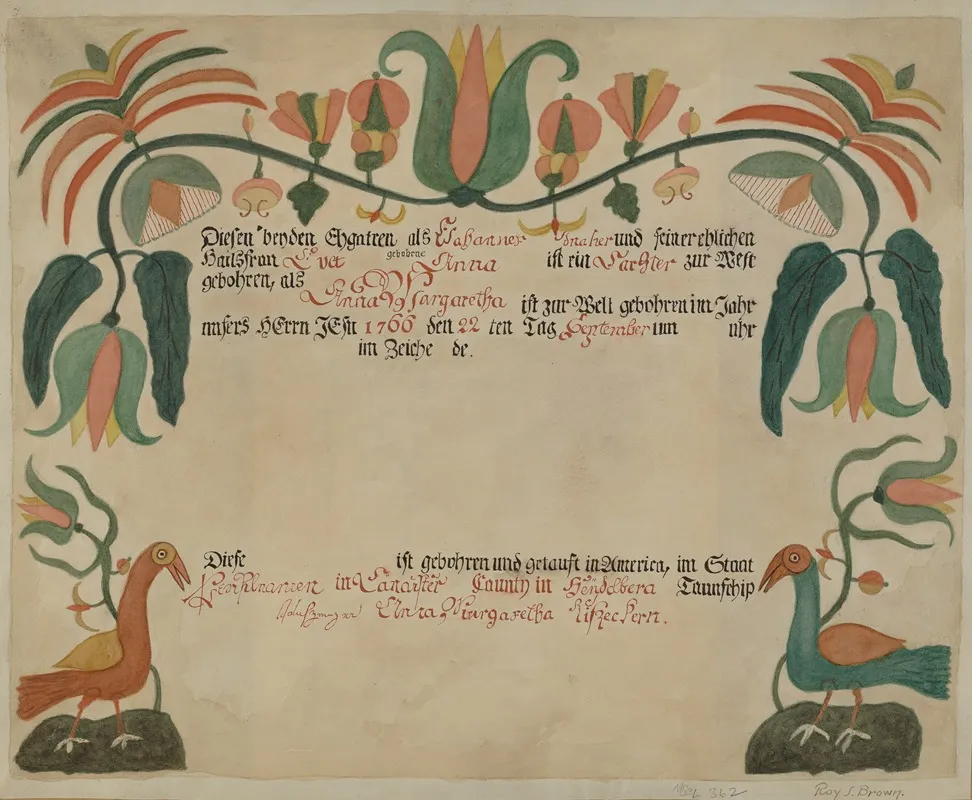 Diesen beyden Ehgatten als Johannes und seiner ehlichen
Hausfrau Evet gebohrne Anna ist ein Tachter zur Welt
gebohren, als
Anna Margaretha ist zur Welt gebohren im Jahr
unsers HErrn JEsu 1766 den 22 ten Tag September um uhr
im Zeiche de.
Diese ist gebohren und getauft in America, im Staat
in County in Taunschip
Anna Margaretha
362 Roy S. Brown.